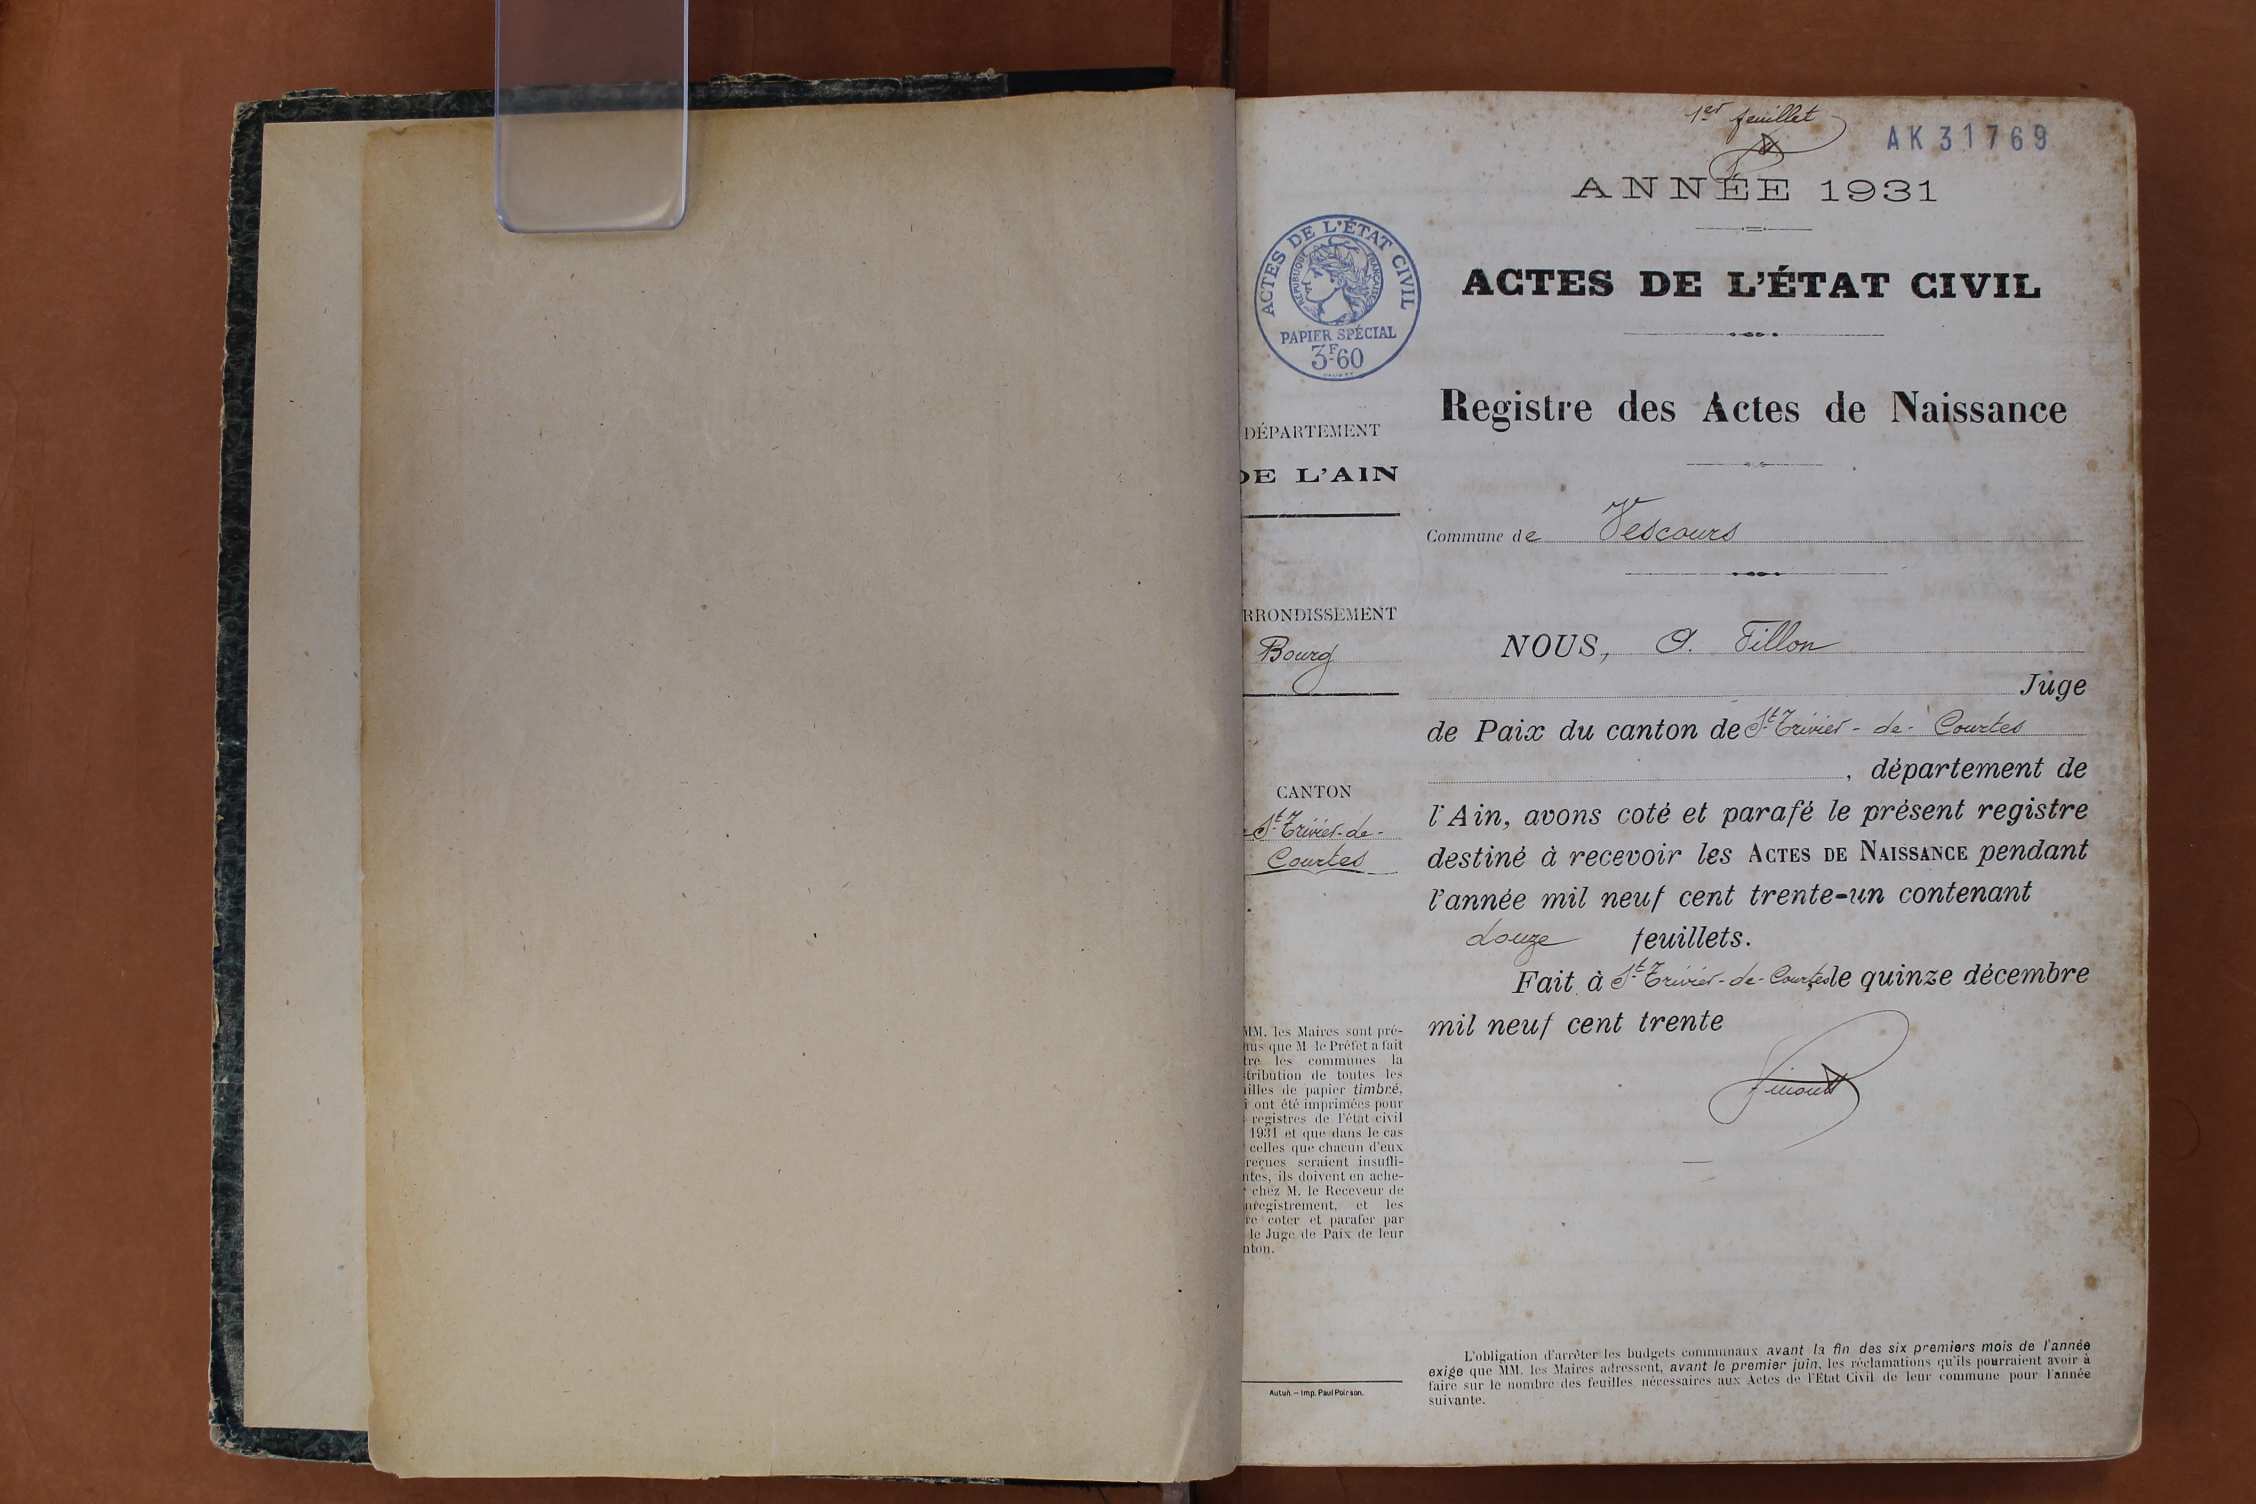 1er feuillet
AK31769
ANNÉE 1931
ACTES DE L'ÉTAT CIVIL
RÉPUBLIQUE FRANÇAISE
PAPIER SPÉCIAL
3F60
ACTES DE L'ÉTAT CIVIL
Registre des Actes de Naissance
DÉPARTEMENT
DE L'AIN
Commune de Vescours
RRONDISSEMENT
Bourg
NOUS, A. Fillon
Juge
de Paix du canton de St Trivier-de-Courtes
, département de
CANTON
St Trivier-de-
Courtes
l'Ain, avons coté et parafé le présent registre
destiné à recevoir les ACTES DE NAISSANCE pendant
l'année mil neuf cent trente-un contenant
douze feuillets.
Fait à St Trivier-de-Courtes le quinze décembre
mil neuf cent trente
MM. les Maires sont pré-
nus que M le Préfet a fait
tre les communes la
tribution de toutes les
illes de papier timbré,
i ont été imprimées pour
registres de l'état civil
1931 et que dans le cas
celles que chacun d'eux
reçues seraient insuffi-
ntes, ils doivent en ache-
chez M. le Receveur de
nregistrement, et les
re coter et parafer par
le Juge de Paix de leur
nton.
Autun. – Imp. Paul Poirson.
L'obligation d'arrêter les budgets communaux avant la fin des six premiers mois de l'année
exige que MM. les Maires adressent, avant le premier juin, les réclamations qu'ils pourraient avoir à
faire sur le nombre des feuilles nécessaires aux Actes de l'État Civil de leur commune pour l'année
suivante.